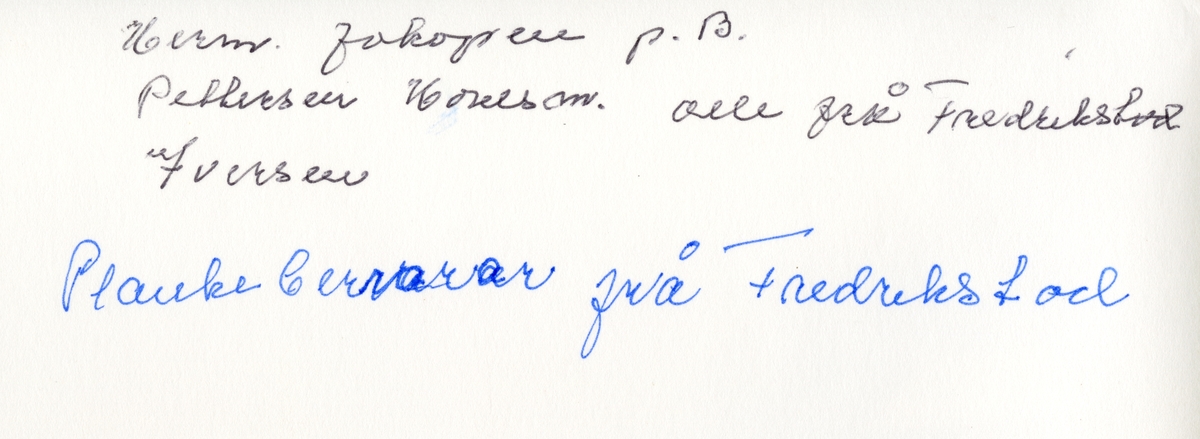 Herm. Jakopsen p. B.
Pettersen Hornsm. alle frå Fredrikstad
Iversen
Plankeberarar frå Fredrikstad